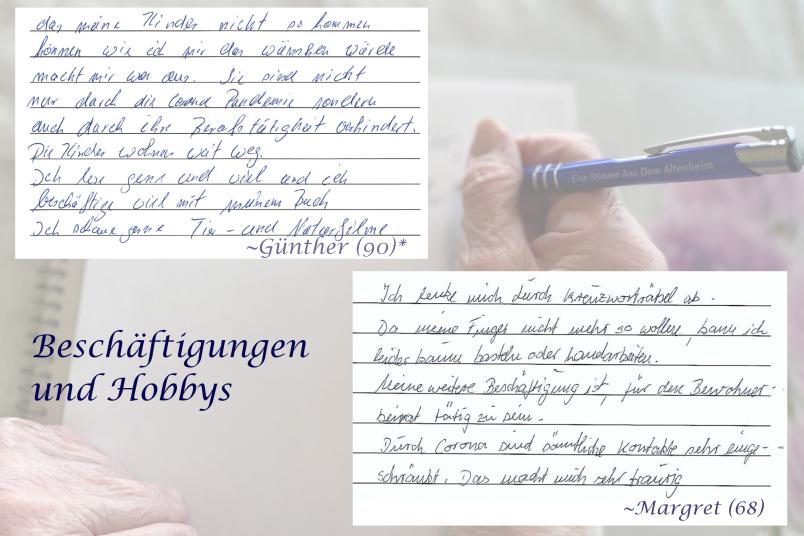 das meine Kinder nicht so kommen
können wie ich mir das wünschen würde
macht mir was aus. Sie sind nicht
nur durch die Corona Pandemie sondern
auch durch ihre Berufstätigkeit verhindert.
Die Kinder wohnen weit weg.
Ich lese gerne und viel und ich
beschäftige viel mit meinem Buch
Ich schaue gerne Tier- und Naturfilme
~Günther (90)*
Eine Stimme Aus Dem Altenheim
Beschäftigungen
und Hobbys
Ich lenke mich durch Kreuzworträtsel ab.
Da meine Finger nicht mehr so wollen, kann ich
leider kaum basteln oder handarbeiten.
Meine weitere Beschäftigung ist, für den Bewohner-
beirat tätig zu sein.
Durch Corona sind sämtliche Kontakte sehr einge-
schränkt. Das macht mich sehr traurig
~Margret (68)